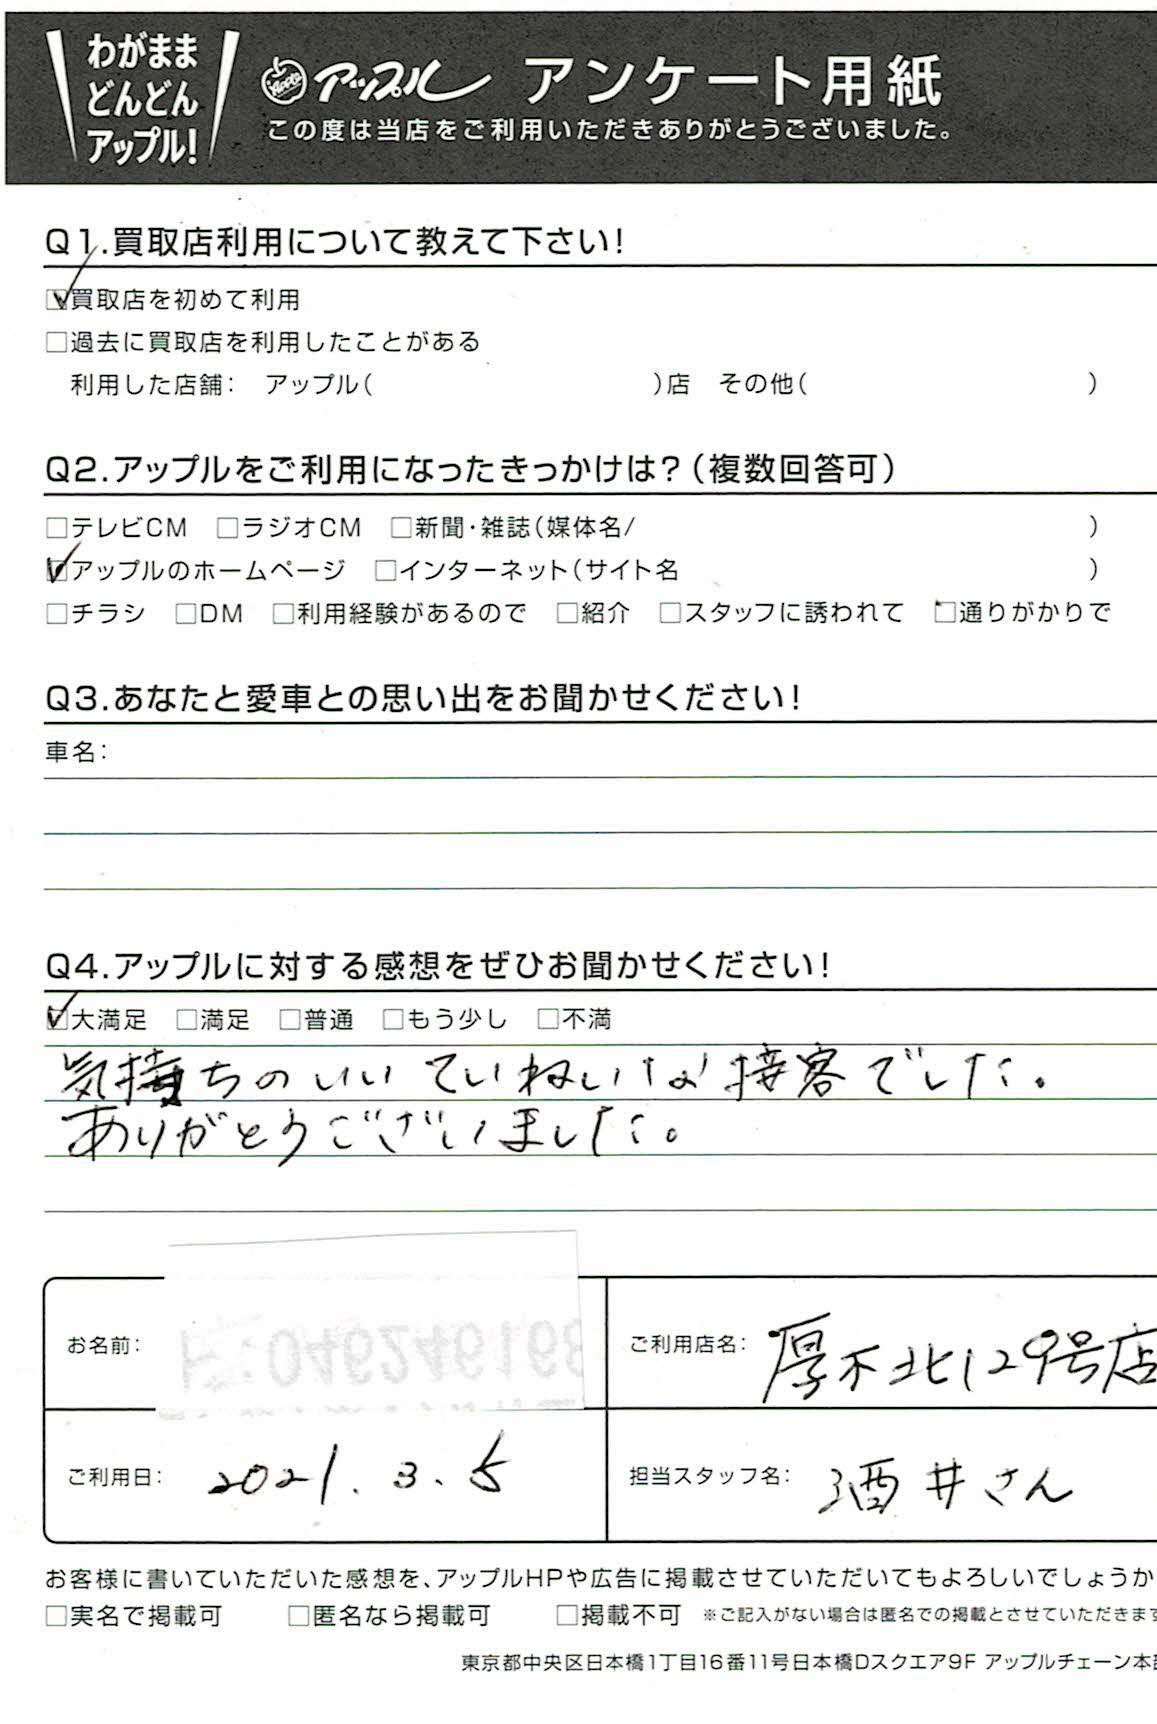 わがまま
どんどん
アップル!
アップル アンケート用紙
この度は当店をご利用いただきありがとうございました。
Q1.買取店利用について教えて下さい!
☑買取店を初めて利用
□過去に買取店を利用したことがある
利用した店舗: アップル( )店 その他( )
Q2.アップルをご利用になったきっかけは?(複数回答可)
□テレビCM □ラジオCM □新聞・雑誌(媒体名/ )
☑アップルのホームページ □インターネット(サイト名 )
□チラシ □DM □利用経験があるので □紹介 □スタッフに誘われて □通りがかりで
Q3.あなたと愛車との思い出をお聞かせください!
車名:
Q4.アップルに対する感想をぜひお聞かせください!
☑大満足 □満足 □普通 □もう少し □不満
気持ちのいいていねいな接客でした。
ありがとうございました。
お名前:
ご利用店名: 厚木北129号店
ご利用日: 2021.3.5
担当スタッフ名: 酒井さん
お客様に書いていただいた感想を、アップルHPや広告に掲載させていただいてもよろしいでしょうか
□実名で掲載可 □匿名なら掲載可 □掲載不可 ※ご記入がない場合は匿名での掲載とさせていただきます
東京都中央区日本橋1丁目16番11号日本橋Dスクエア9F アップルチェーン本部